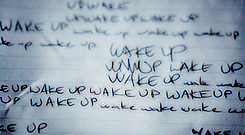 UPWAKE
WAKE UP LAKE UP
WAKE UP wake up wake up WAKE
wake up wake up
WAKE UP
LAKE UP
WAKE UP wake wake
EUP WAKE UP WAKE UP WAKE UP
WAKE UP wake wake wake
E UP WAKE